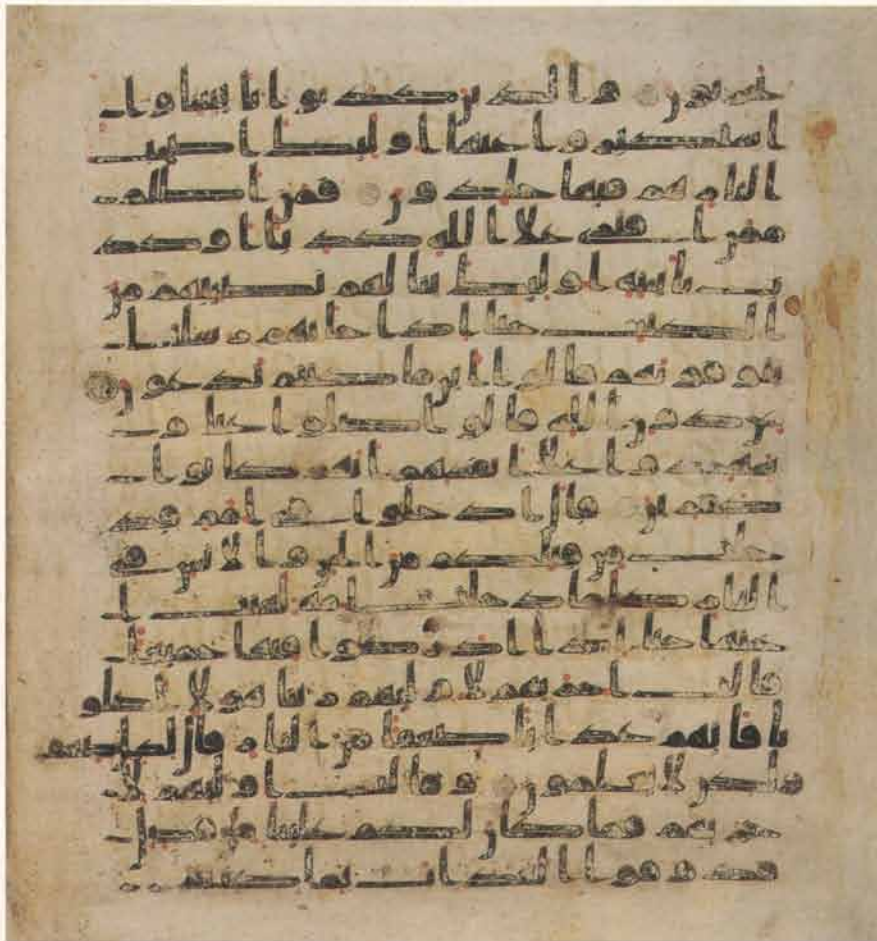 يحزنون والذين كذبوا بايتنا و
استكبروا عنها اولئك اصحب
النار هم فيها خلدون فمن اظلم
ممن افترى على الله كذبا او كذ
ب بايته اولئك ينالهم نصيبهم من
الكتب حتى اذا جاتهم رسلنا
يتوفونهم قالوا اين ما كنتم تدعون
من دون الله قالوا ضلوا عنا و
شهدوا على انفسهم انهم كانوا
كفرين قال ادخلوا في امم قد
خلت من قبلكم من الجن والانس في
النار كلما دخلت امة لعنت ا
ختها حتى اذا اداركوا فيها جميعا
قالت اخريهم لاوليهم ربنا هولا اضلو
نا فاتهم عذابا ضعفا من النار قال لكل ضعف
ولكن لا تعلمون وقالت اوليهم لا
خريهم فما كان لكم علينا من فضل
فذوقوا العذاب بما كنتم